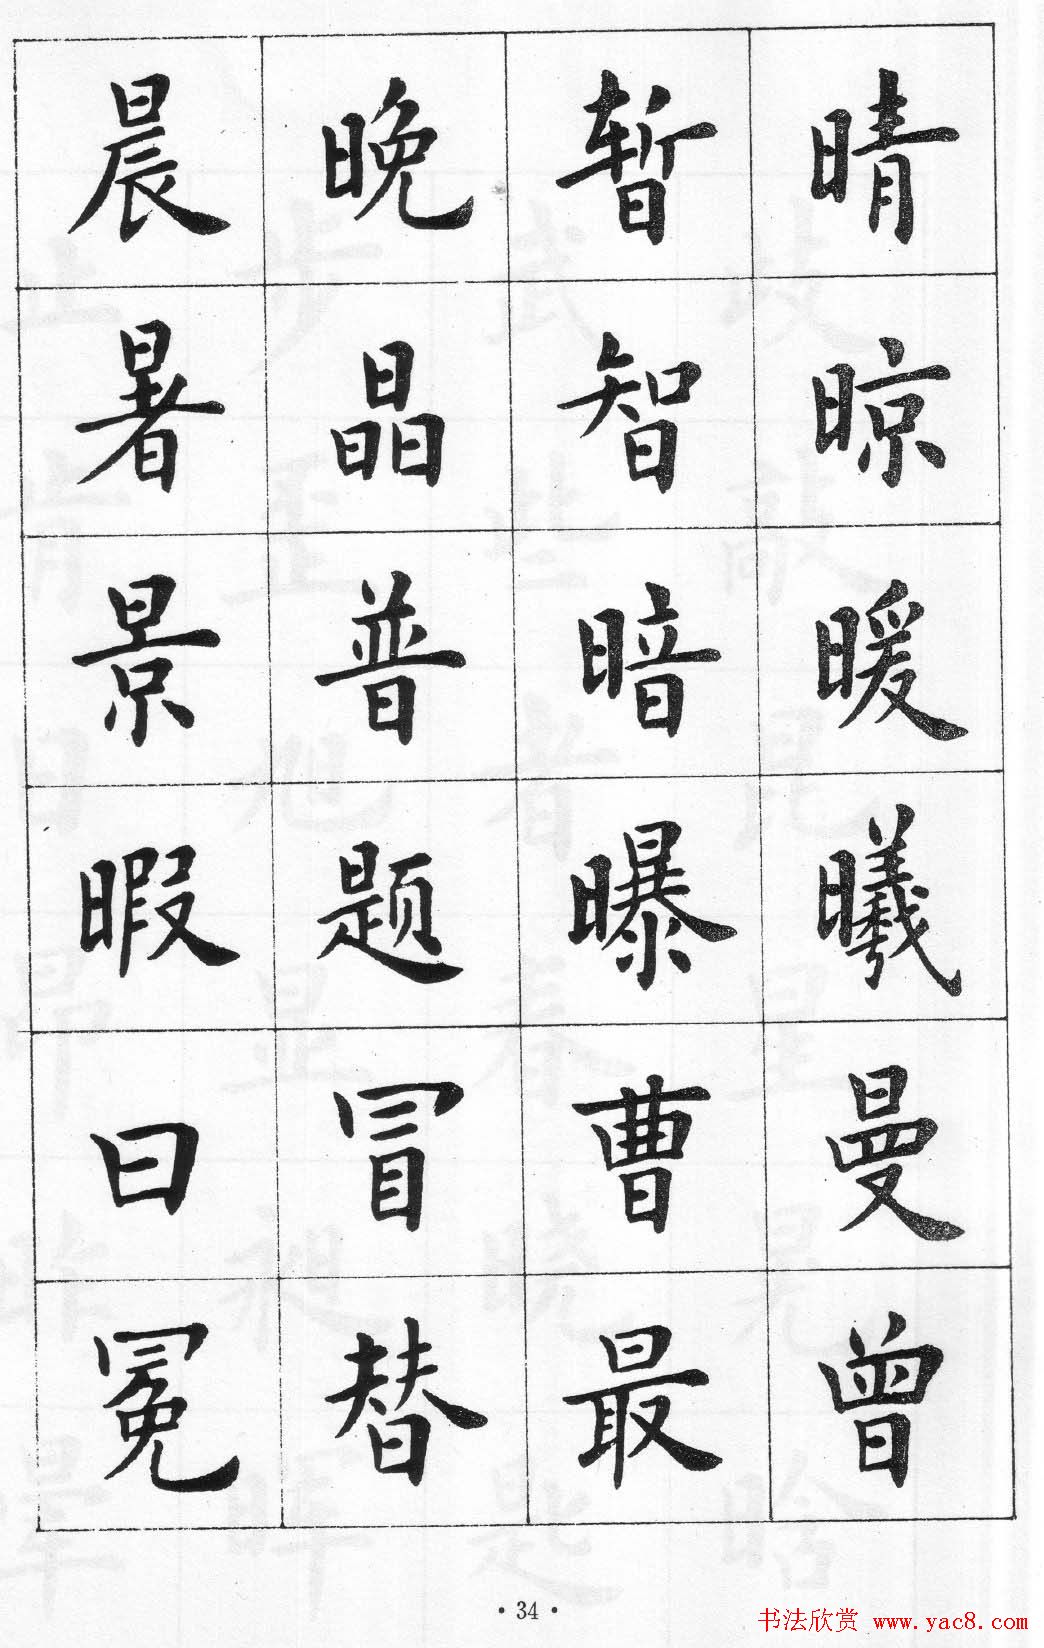 晨晚暂晴
暑晶智晾
景普暗暖
暇题曝曦
曰冒曹曼
冕替最曾
·34·
书法欣赏 www.yac8.com